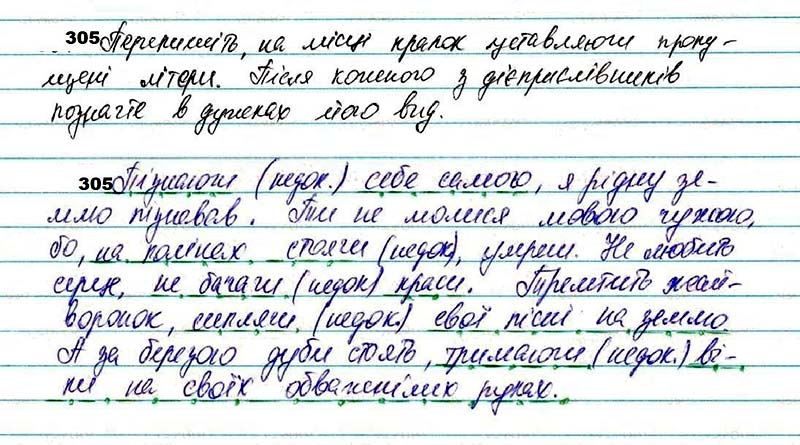 305 Перепишіть, на місці крапок уставляючи пропу-
щені літери. Після кожного з дієприслівників
позначте в дужках його вид.
305 Пізнаючи (недок.) себе самого, я рідну зе-
млю пізнавав. Ти не молися мовою чужою,
бо, на колінах стоячи (недок), умреш. Не любить
серце, не бачачи (недок) краси. Тремтить жай-
воронок, сиплячи (недок.) свої пісні на землю
А за березою дуби стоять, тримаючи (недок.) ві-
ки на своїх обважнілих руках.